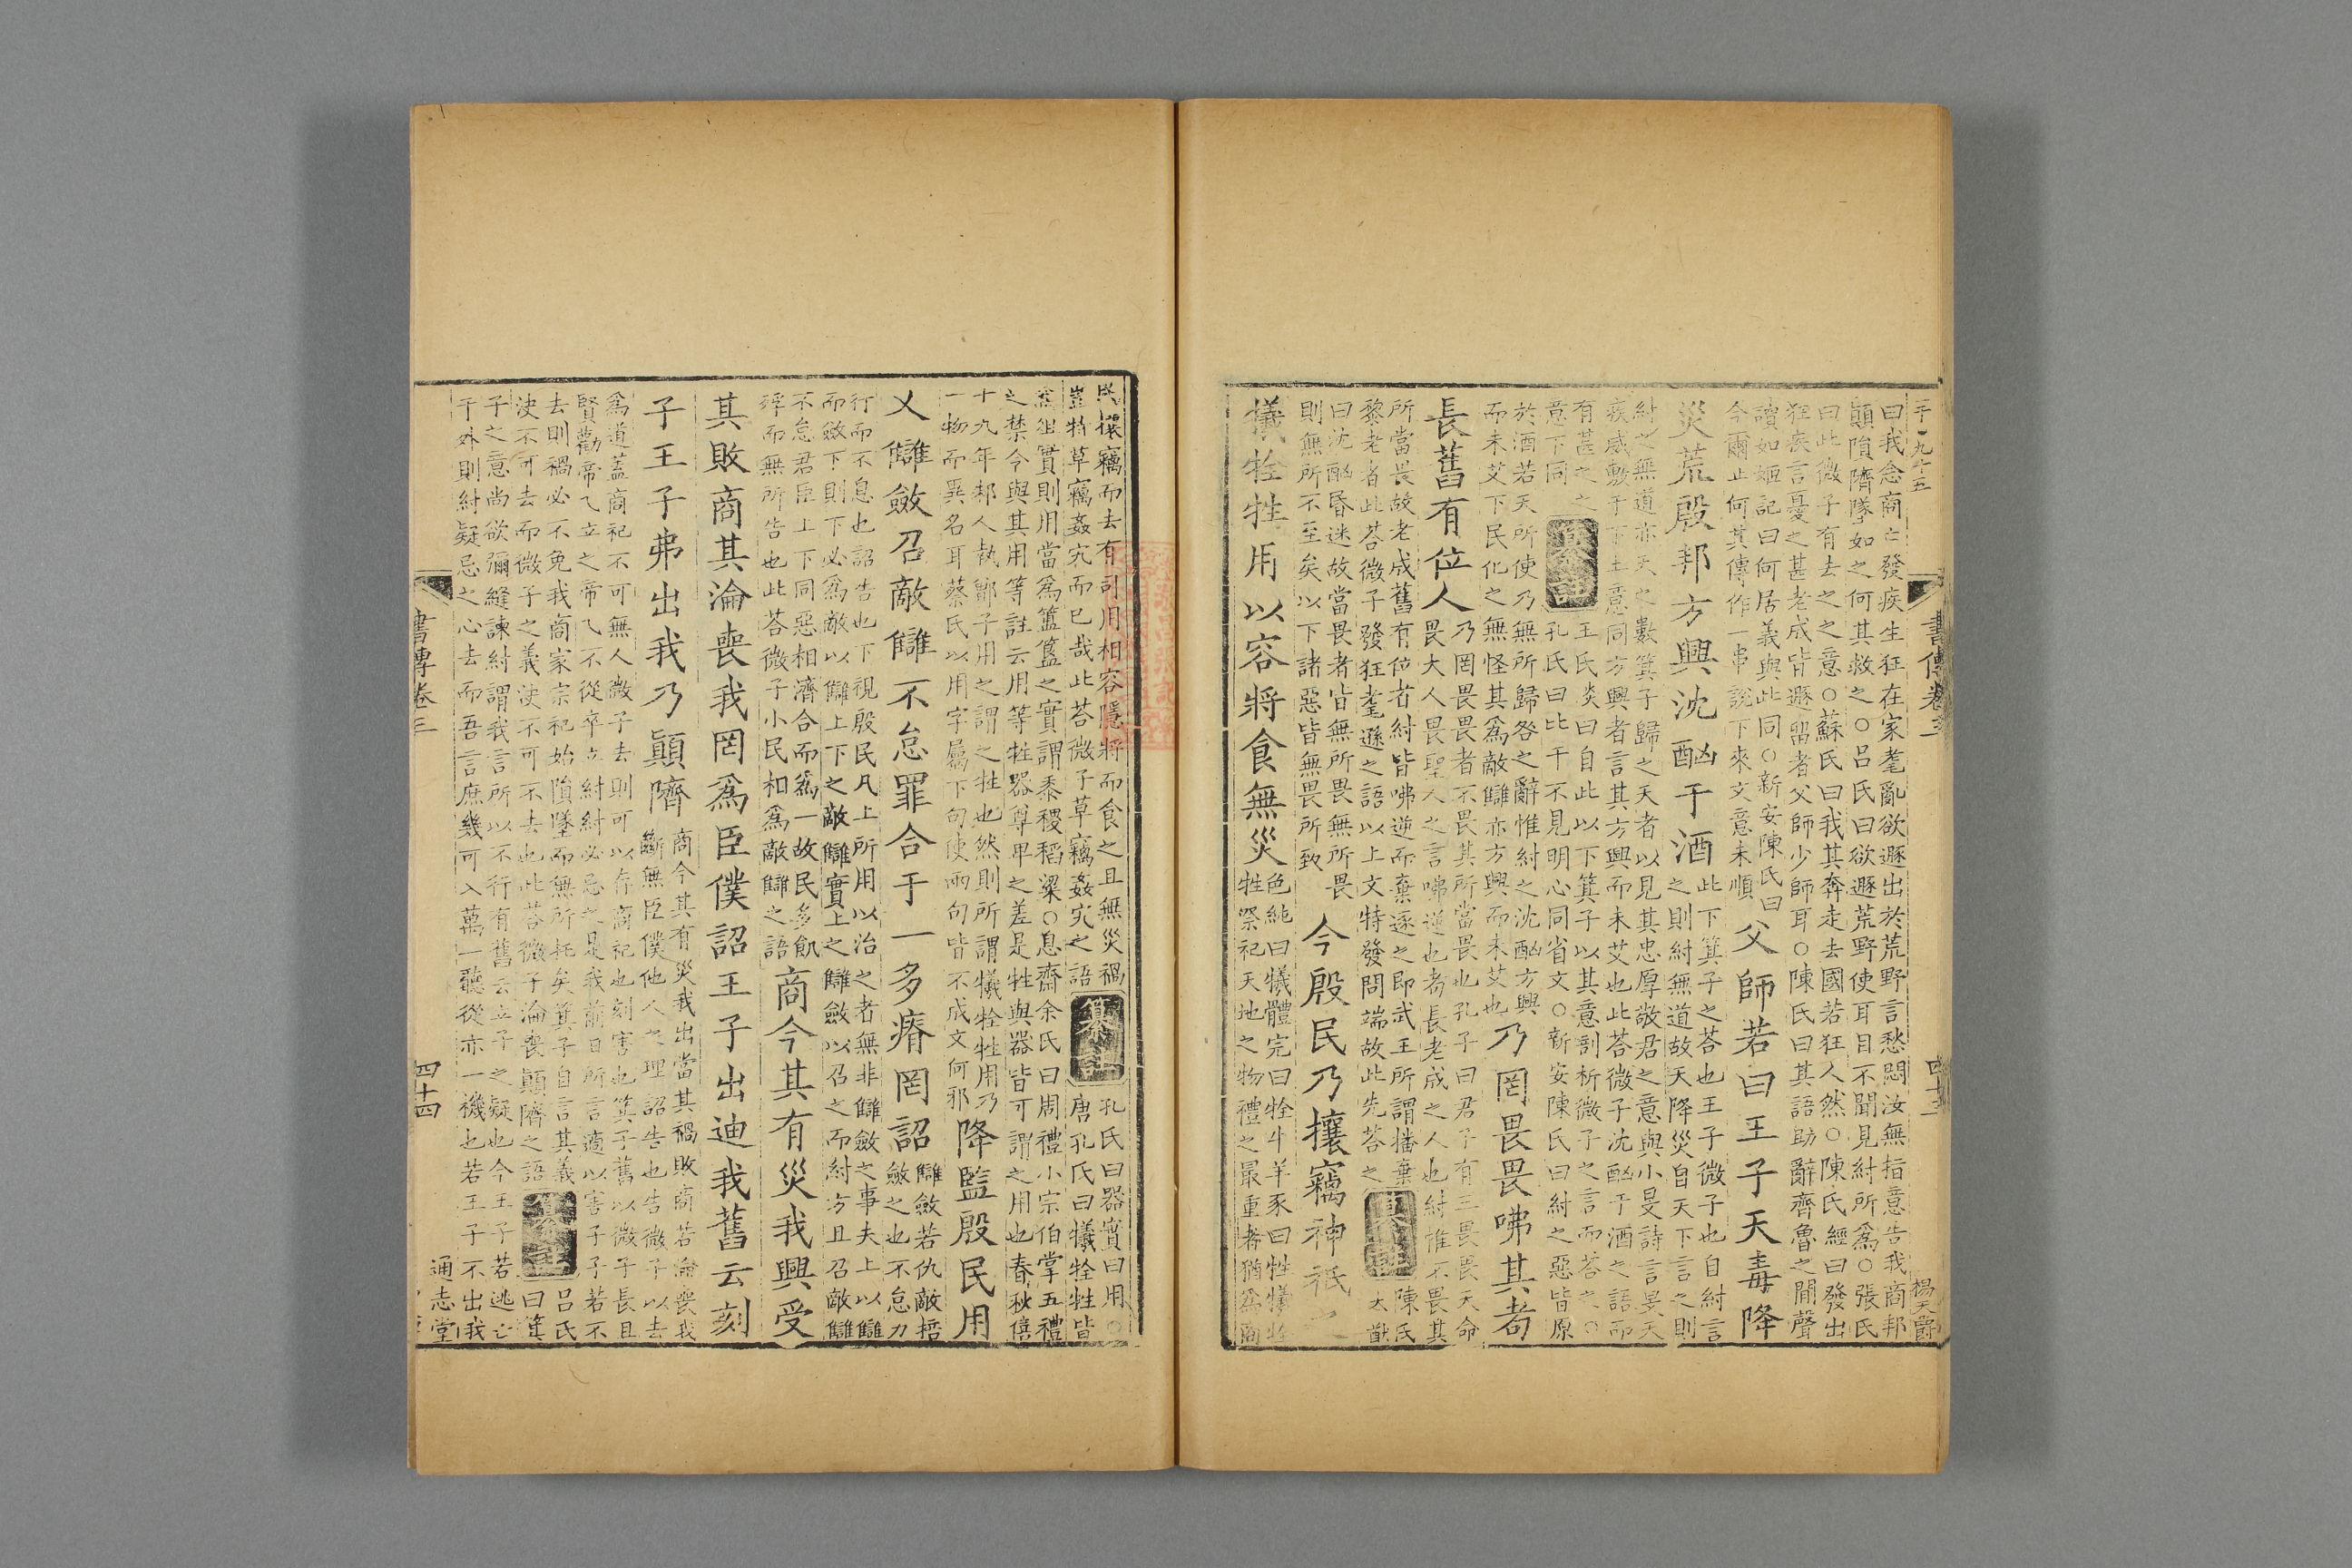 于一九十五
書傳卷三
楊天爵
曰我念商亡發疾生狂在家耄亂欲遯出於荒野言愁悶汝無指意告我商邦
顛隕隮墜如之何其救之○呂氏曰欲遯荒野使耳目不聞見紂所為○張氏
曰此微子有去之之意○蘇氏曰我其奔走去國若狂人然○陳氏經曰發出
狂疾言憂之甚老成皆遯留者父師少師耳○陳氏曰其語助辭齊魯之間聲
讀如姬記曰何居義與此同○新安陳氏曰
今爾止何其傳作一串說下來文意未順
父師若曰王子天毒降
災荒殷邦方興沈酗于酒
此下箕子之荅也王子微子也自紂言
之則紂無道故天降災自天下言之則
紂之無道亦天之數箕子歸之天者以見其忠厚敬君之意與小旻詩言旻天
疾威敷于下土意同方興者言其方興而未艾也此荅微子沈酗于酒之語而
有甚之之
意下同
纂註
王氏炎曰自此以下箕子以其意剖析微子之言而荅之○
孔氏曰比干不見明心同省文○新安陳氏曰紂之惡皆原
於酒若天所使乃無所歸咎之辭惟紂之沈酗方興
而未艾下民化之無怪其為敵讎亦方興而未艾也
乃罔畏畏咈其耇
長舊有位人
乃罔畏畏者不畏其所當畏也孔子曰君子有三畏畏天命
畏大人畏聖人之言咈逆也耇長老成之人也紂惟不畏其
所當畏故老成舊有位者紂皆咈逆而棄逐之即武王所謂播棄
黎老者此荅微子發狂耄遜之語以上文特發問端故此先荅之
纂註
陳氏
大猷
曰沈酗昏迷故當畏者皆無所畏無所畏
則無所不至矣以下諸惡皆無畏所致
今殷民乃攘竊神祇之
犧牷牲用以容將食無災
色純曰犧體完曰牷牛羊豕曰牲犧牷
牲祭祀天地之物禮之最重者猶為商
民攘竊而去有司用相容隱將而食之且無災禍
豈特草竊姦宄而已哉此荅微子草竊姦宄之語
纂註
孔氏曰器實曰用○
唐孔氏曰犧牷牲皆
為俎實則用當為簠簋之實謂黍稷稻粱○息齋余氏曰周禮小宗伯掌五禮
之禁令與其用等註云用等牲器尊卑之差是牲與器皆可謂之用也春秋僖
十九年邾人執鄫子用之謂之牲也然則所謂犧牷牲用乃
一物而異名耳蔡氏以用字屬下句使兩句皆不成文何邪
降監殷民用
乂讎斂召敵讎不怠罪合于一多瘠罔詔
讎斂若仇敵掊
斂之也不怠力
行而不息也詔告也下視殷民凡上所用以治之者無非讎斂之事夫上以讎
而斂下則下必為敵以讎上下之敵讎實上之讎斂以召之而紂方且召敵讎
不怠君臣上下同惡相濟合而為一故民多飢
殍而無所告也此荅微子小民相為敵讎之語
商今其有災我興受
其敗商其淪喪我罔為臣僕詔王子出迪我舊云刻
子王子弗出我乃顛隮
商今其有災我出當其禍敗商若淪喪我
斷無臣僕他人之理詔告也告微子以去
為道蓋商祀不可無人微子去則可以存商祀也刻害也箕子舊以微子長且
賢勸帝乙立之帝乙不從卒立紂紂必忌之是我前日所言適以害子子若不
去則禍必不免我商家宗祀始隕墜而無所托矣箕子自言其義
決不可去而微子之義決不可不去也此荅微子淪喪顛隮之語
纂註
呂氏
曰箕
子之意尚欲彌縫諫紂謂我言所以不行有舊云立子之疑也今王子若逃亡
于外則紂疑忌之心去而吾言庶幾可入萬一聽從亦一機也若王子不出我
書傳卷三
四十四
通志堂